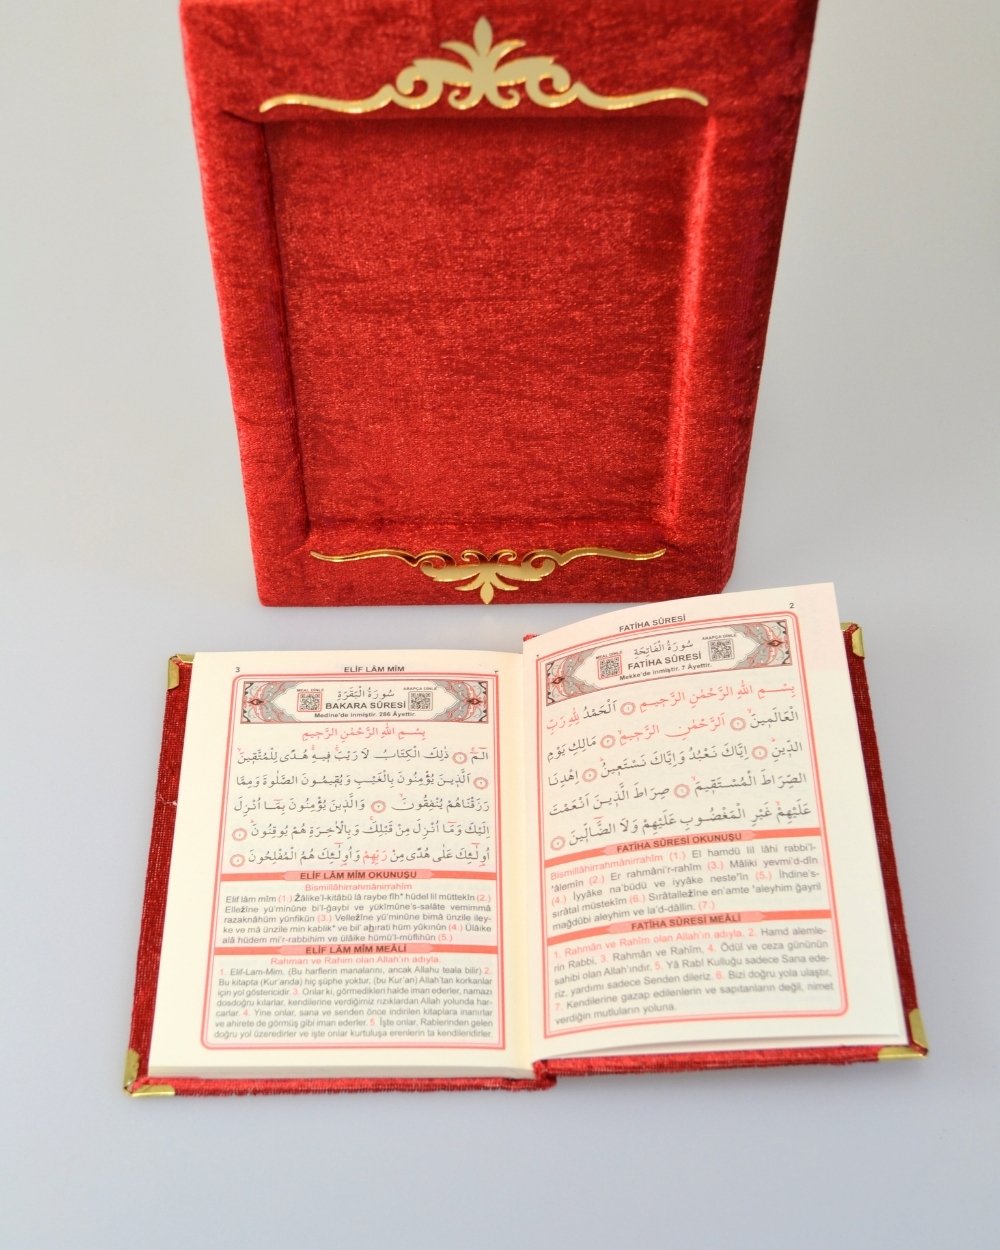 FATİHA SÛRESİ 2
MEAL DİNLE سُورَةُ الْفَاتِحَةِ ARAPÇA DİNLE
FATİHA SÛRESİ
Mekke'de inmiştir. 7 Âyettir.
بِسْمِ اللّٰهِ الرَّحْمٰنِ الرَّحِيمِ ١ اَلْحَمْدُ لِلّٰهِ رَبِّ
الْعَالَمِينَ ٢ اَلرَّحْمٰنِ الرَّحِيمِ ٣ مَالِكِ يَوْمِ
الدِّينِ ٤ اِيَّاكَ نَعْبُدُ وَاِيَّاكَ نَسْتَعِينُ ٥ اِهْدِنَا
الصِّرَاطَ الْمُسْتَقِيمَ ٦ صِرَاطَ الَّذِينَ اَنْعَمْتَ
عَلَيْهِمْ غَيْرِ الْمَغْضُوبِ عَلَيْهِمْ وَلَا الضَّالِّينَ ٧
FATİHA SÛRESİ OKUNUŞU
Bismillâhirrahmânirrahîm (1.) El hamdü lil lâhi rabbi'l-
'âlemîn (2.) Er rahmâni'r-rahîm (3.) Mâliki yevmi'd-dîn
(4.) İyyâke na'büdü ve iyyâke neste'în (5.) İhdine's-
sırâtal müstekîm (6.) Sırâtallezîne en'amte 'aleyhim ğayril
mağdûbi aleyhim ve la'd-dâllîn. (7.)
FATİHA SÛRESİ MEALİ
1. Rahmân ve Rahîm olan Allah'ın adıyla. 2. Hamd alemle-
rin Rabbi, 3. Rahmân ve Rahîm, 4. Ödül ve ceza gününün
sahibi olan Allah'ındır. 5. Yâ Rabî Kulluğu sadece Sana ede-
riz, yardımı sadece Senden dileriz. 6. Bizi doğru yola ulaştır,
7. Kendilerine gazap edilenlerin ve sapıtanların değil, nimet
verdiğin mutluların yoluna.
3 ELİF LÂM MÎM
MEAL DİNLE سُورَةُ الْبَقَرَةِ ARAPÇA DİNLE
BAKARA SÛRESİ
Medine'de inmiştir. 286 Âyettir.
بِسْمِ اللّٰهِ الرَّحْمٰنِ الرَّحِيمِ
الٓمٓ ١ ذٰلِكَ الْكِتَابُ لَا رَيْبَ فِيهِ هُدًى لِلْمُتَّقِينَ
٢ اَلَّذِينَ يُؤْمِنُونَ بِالْغَيْبِ وَيُقِيمُونَ الصَّلٰوةَ وَمِمَّا
رَزَقْنَاهُمْ يُنْفِقُونَ ٣ وَالَّذِينَ يُؤْمِنُونَ بِمَٓا اُنْزِلَ
اِلَيْكَ وَمَٓا اُنْزِلَ مِنْ قَبْلِكَ وَبِالْاٰخِرَةِ هُمْ يُوقِنُونَ ٤
اُولٰٓئِكَ عَلٰى هُدًى مِنْ رَبِّهِمْ وَاُولٰٓئِكَ هُمُ الْمُفْلِحُونَ ٥
ELİF LÂM MÎM OKUNUŞU
Bismillâhirrahmânirrahîm
Elif lâm mîm (1.) Zâlike'l-kitâbü lâ raybe fîh* hüdel lil müttekîn (2.)
Ellezîne yü'minûne bi'l-ğaybi ve yükîmûne's-salâte vemimmâ
razaknâhüm yünfikûn (3.) Vellezîne yü'minûne bimâ ünzile iley-
ke ve mâ ünzile min kablik* ve bil' aḫırati hüm yûkınûn (4.) Ülâike
alâ hüdem mi'r-rabbihim ve ülâike hümü'l-müflihûn (5.)
ELİF LÂM MÎM MEALİ
Rahman ve Rahim olan Allah'ın adıyla.
1. Elif-Lam-Mim. (Bu harflerin manalarını, ancak Allahu teala bilir) 2.
Bu kitapta (Kur'anda) hiç şüphe yoktur, (bu Kur'an) Allah'tan korkanlar
için yol göstericidir. 3. Onlar ki, görmedikleri halde iman ederler, namazı
dosdoğru kılarlar, kendilerine verdiğimiz rızıklardan Allah yolunda har-
carlar. 4. Yine onlar, sana ve senden önce indirilen kitaplara inanırlar
ve ahirete de görmüş gibi iman ederler. 5. İşte onlar, Rablerinden gelen
doğru yol üzeredirler ve işte onlar kurtuluşa erenlerin ta kendileridirler.